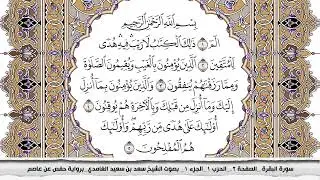 بِسْمِ اللَّهِ الرَّحْمَٰنِ الرَّحِيمِ
الٓمٓ ١ ذَٰلِكَ الْكِتَٰبُ لَا رَيْبَ فِيهِ هُدًى
لِّلْمُتَّقِينَ ٢ الَّذِينَ يُؤْمِنُونَ بِالْغَيْبِ وَيُقِيمُونَ الصَّلَوٰةَ
وَمِمَّا رَزَقْنَٰهُمْ يُنفِقُونَ ٣ وَالَّذِينَ يُؤْمِنُونَ بِمَا أُنزِلَ
إِلَيْكَ وَمَا أُنزِلَ مِن قَبْلِكَ وَبِالْآخِرَةِ هُمْ يُوقِنُونَ ٤
أُولَٰئِكَ عَلَىٰ هُدًى مِّن رَّبِّهِمْ وَأُولَٰئِكَ
هُمُ الْمُفْلِحُونَ ٥
سورة البقرة _ الصفحة ٢ _ الحزب ١ _ الجزء ١ _ بصوت الشيخ سعد بن سعيد الغامدي _ برواية حفص عن عاصم